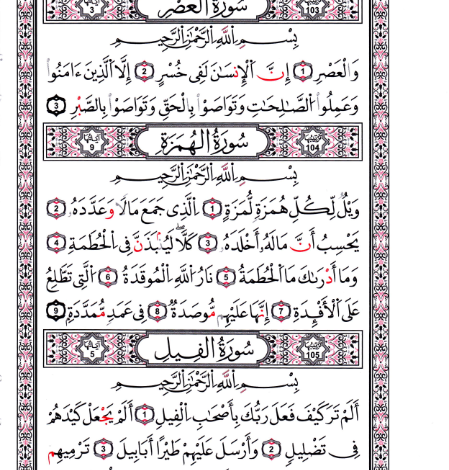 3 سُورَةُ الْعَصْرِ 103
بِسْمِ اللَّهِ الرَّحْمَٰنِ الرَّحِيمِ
وَالْعَصْرِ 1 إِنَّ الْإِنسَانَ لَفِي خُسْرٍ 2 إِلَّا الَّذِينَ ءَامَنُوا
وَعَمِلُوا الصَّالِحَاتِ وَتَوَاصَوْا بِالْحَقِّ وَتَوَاصَوْا بِالصَّبْرِ 3
9 سُورَةُ الْهُمَزَةِ 104
بِسْمِ اللَّهِ الرَّحْمَٰنِ الرَّحِيمِ
وَيْلٌ لِّكُلِّ هُمَزَةٍ لُّمَزَةٍ 1 الَّذِي جَمَعَ مَالًا وَعَدَّدَهُ 2
يَحْسِبُ أَنَّ مَالَهُ أَخْلَدَهُ 3 كَلَّا لَيُنبَذَنَّ فِي الْحُطَمَةِ 4
وَمَا أَدْرَىٰكَ مَا الْحُطَمَةُ 5 نَارُ اللَّهِ الْمُوقَدَةُ 6 الَّتِي تَطَّلِعُ
عَلَى الْأَفْـِٔدَةِ 7 إِنَّهَا عَلَيْهِم مُّوصَدَةٌ 8 فِي عَمَدٍ مُّمَدَّدَةٍ 9
5 سُورَةُ الْفِيلِ 105
بِسْمِ اللَّهِ الرَّحْمَٰنِ الرَّحِيمِ
أَلَمْ تَرَ كَيْفَ فَعَلَ رَبُّكَ بِأَصْحَابِ الْفِيلِ 1 أَلَمْ يَجْعَلْ كَيْدَهُمْ
فِي تَضْلِيلٍ 2 وَأَرْسَلَ عَلَيْهِمْ طَيْرًا أَبَابِيلَ 3 تَرْمِيهِم